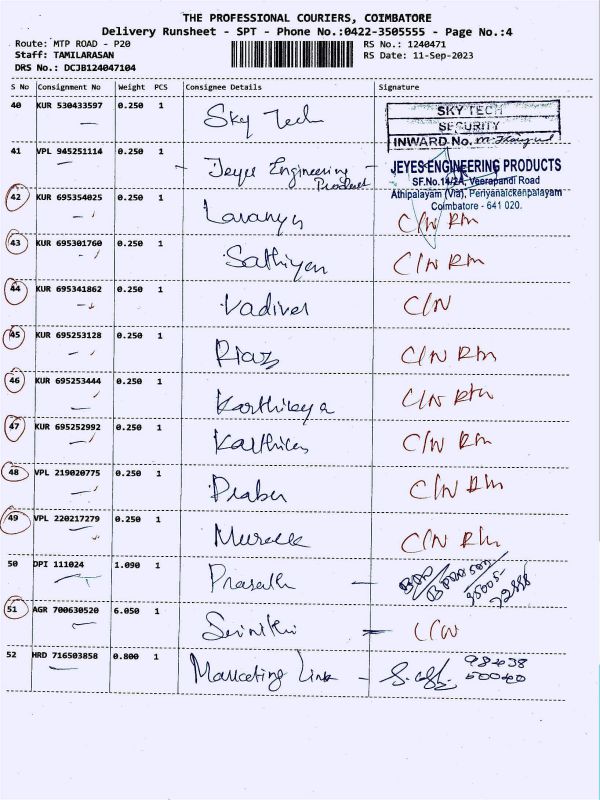 THE PROFESSIONAL COURIERS, COIMBATORE
Delivery Runsheet - SPT - Phone No.:0422-3505555 - Page No.:4
Route: MTP ROAD - P20 RS No.: 1240471
Staff: TAMILARASAN RS Date: 11-Sep-2023
DRS No.: DCJB124047104
S No Consignment No Weight PCS Consignee Details Signature
40 KUR 530433597 0.250 1 Sky Tech
SKY TECH
SECURITY
INWARD No.
41 VPL 945251114 0.250 1 - Jeyes Engineering Product -
JEYES ENGINEERING PRODUCTS
SF.No.14/2A, Veerapandi Road
Athipalayam (Via), Periyanaickenpalayam
Coimbatore - 641 020.
42 KUR 695354025 0.250 1 Lavanya C/N Rtn
43 KUR 695301760 0.250 1 Sathiyan C/N Rtn
44 KUR 695341862 0.250 1 Vadivel C/N
45 KUR 695253128 0.250 1 Riaz C/N Rtn
46 KUR 695253444 0.250 1 Karthikeya C/N Rtn
47 KUR 695252992 0.250 1 Karthik C/N Rtn
48 VPL 219020775 0.250 1 Prabu C/N Rtn
49 VPL 220217279 0.250 1 Murali C/N Rtn
50 DPI 111024 1.090 1 Prasath - 95005 72888
51 AGR 700630520 6.050 1 Srinithi = C/N
52 HRD 716503858 0.800 1 Marketing Link - 98438 50040